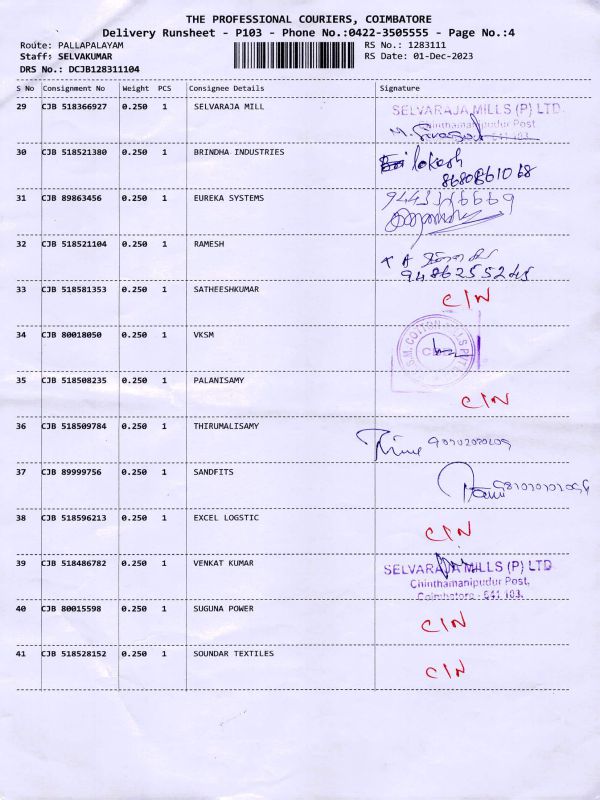 THE PROFESSIONAL COURIERS, COIMBATORE
Delivery Runsheet - P103 - Phone No.:0422-3505555 - Page No.:4
Route: PALLAPALAYAM RS No.: 1283111
Staff: SELVAKUMAR RS Date: 01-Dec-2023
DRS No.: DCJB128311104
S No Consignment No Weight PCS Consignee Details Signature
29 CJB 518366927 0.250 1 SELVARAJA MILL SELVARAJA MILLS (P) LTD.
Chinthamanipudur Post
641 103.
30 CJB 518521380 0.250 1 BRINDHA INDUSTRIES lokesh
31 CJB 89863456 0.250 1 EUREKA SYSTEMS
32 CJB 518521104 0.250 1 RAMESH
9486255245
33 CJB 518581353 0.250 1 SATHEESHKUMAR C/N
34 CJB 80018050 0.250 1 VKSM
35 CJB 518508235 0.250 1 PALANISAMY C/N
36 CJB 518509784 0.250 1 THIRUMALISAMY
37 CJB 89999756 0.250 1 SANDFITS
38 CJB 518596213 0.250 1 EXCEL LOGSTIC C/N
39 CJB 518486782 0.250 1 VENKAT KUMAR SELVARAJA MILLS (P) LTD
Chinthamanipudur Post,
Coimbatore - 641 103.
40 CJB 80015598 0.250 1 SUGUNA POWER C/N
41 CJB 518528152 0.250 1 SOUNDAR TEXTILES C/N